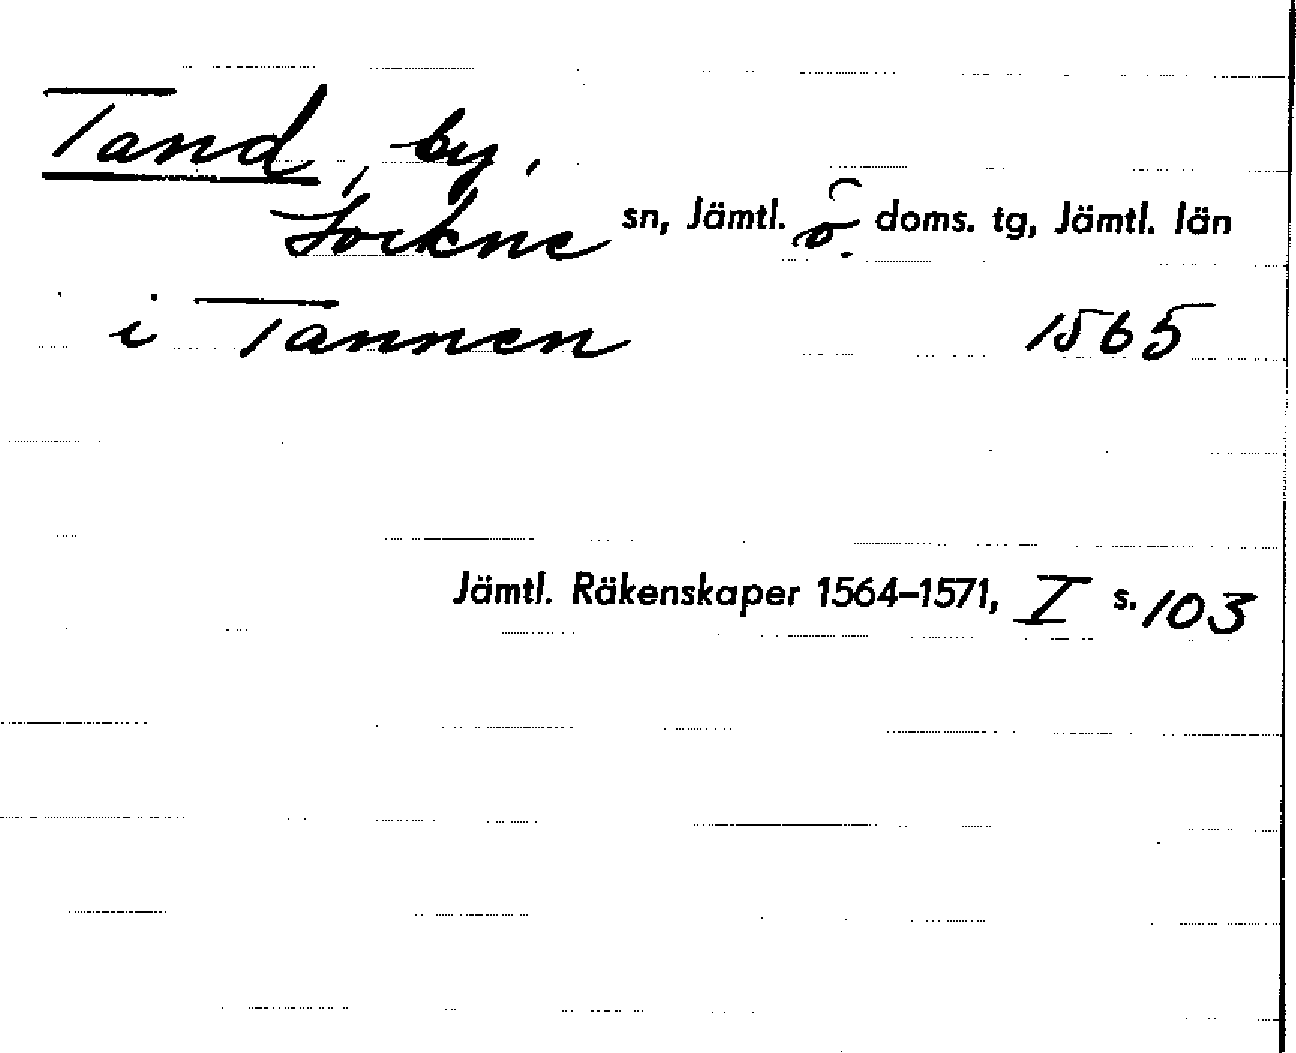 Tand, by,
Lockne sn, Jämtl. ö. doms. tg, Jämtl. län
i Tannen 1565
Jämtl. Räkenskaper 1564–1571, I s. 103